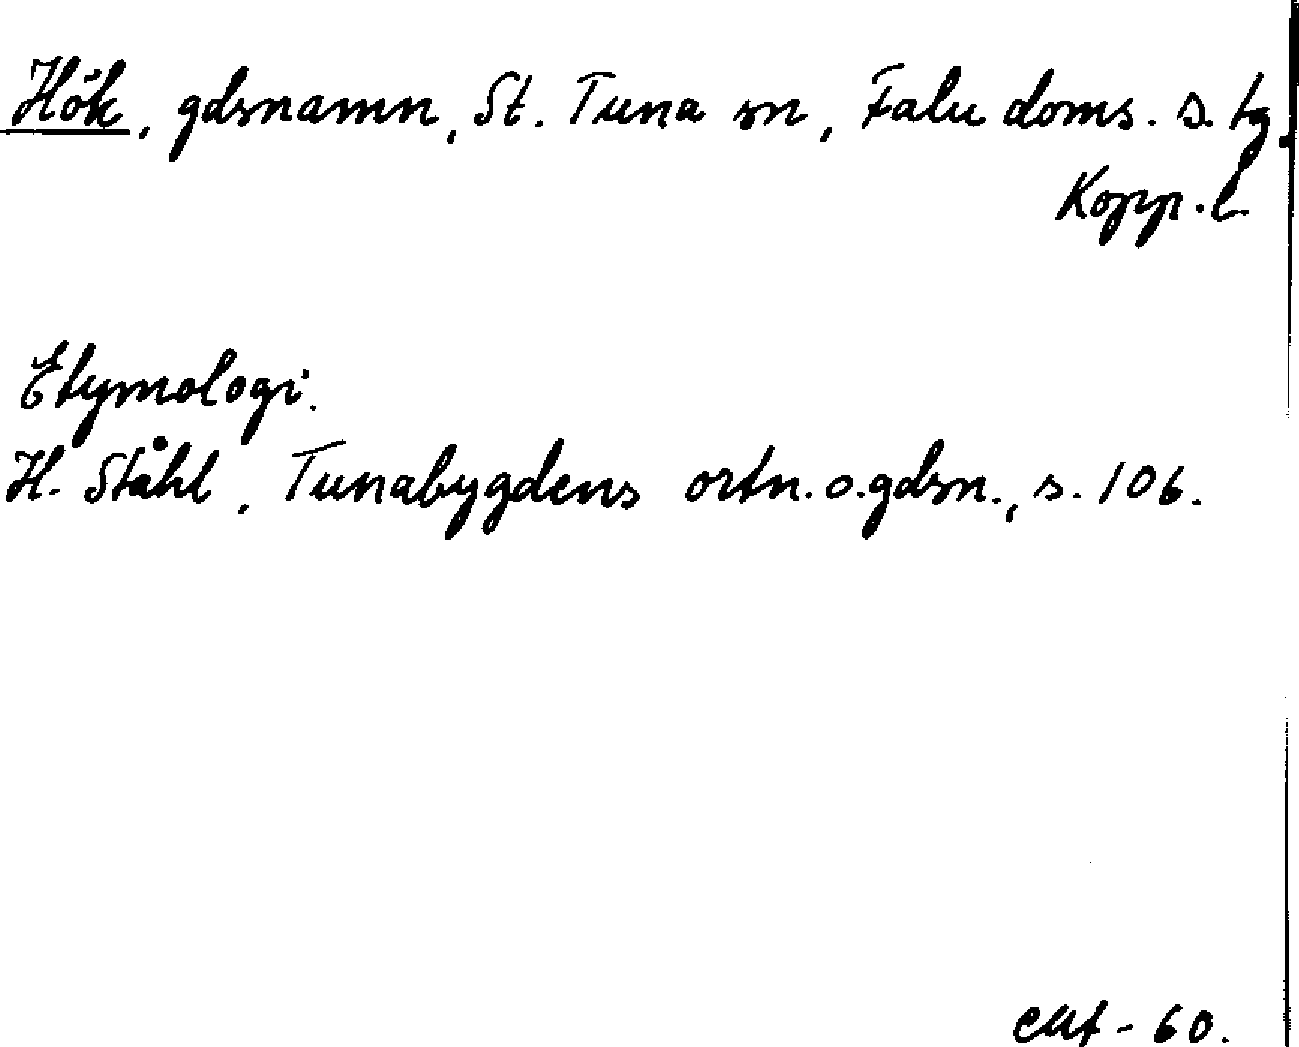 Hök, gdsnamn, St. Tuna sn, Falu doms. s. tg.
Kopp. l.
Etymologi.
H. Ståhl, Tunabygdens ortn. o. gdsn., s. 106.
60.